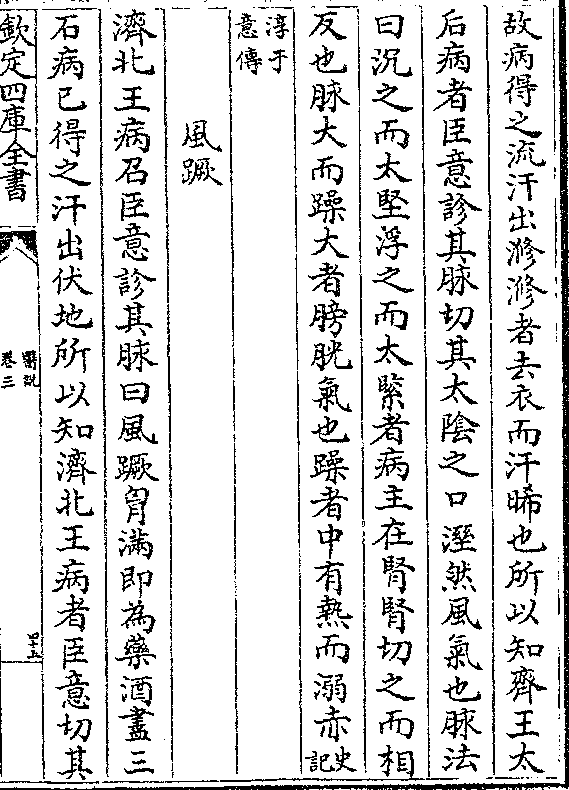 故病得之流汗出㵌㵌者去衣而汗晞也所以知齊王太
后病者臣意診其脉切其太陰之口溼然風氣也脉法
曰沉之而太堅浮之而太緊者病主在腎腎切之而相
反也脉大而躁大者膀胱氣也躁者中有熱而溺赤史記
淳于意傳
風蹶
濟北王病召臣意診其脉曰風蹶胷滿即為藥酒盡三
石病已得之汗出伏地所以知濟北王病者臣意切其
欽定四庫全書
醫説
卷三
四五